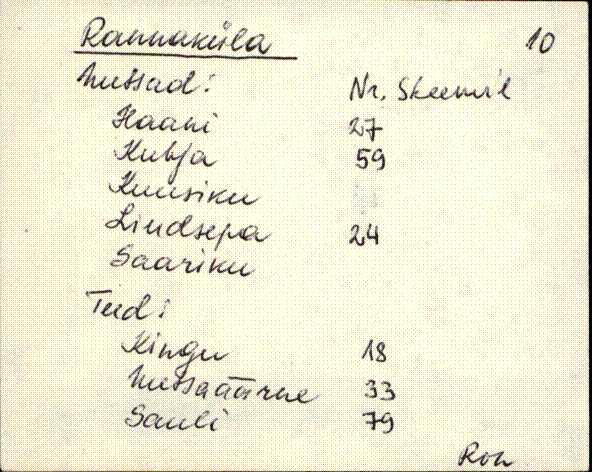 Rannaküla 10
Metsad: Nr. Skeemil
Haani 27
Kubja 59
Kuusiku
Lindsepa 24
Saariku
Teed:
Kingu 18
Metsaäärne 33
Sauli 79